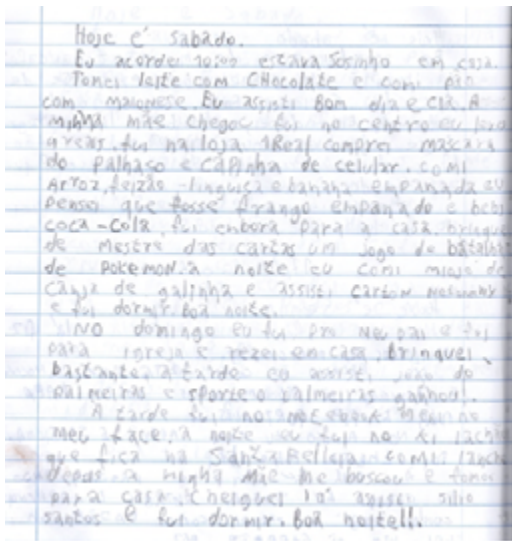 Hoje é sabado.
Eu acordei 10:00 estava sosinho em casa.
Tomei leite com CHocolate e comi pão
com maionese. Eu assisti Bom dia e cia. A
minha mãe chegou fui no centro eu
fui na loja 1Real comprei mascara
do palhaço e capinha de celular. comi
Arroz, feijão - linguiça e banana empanada eu
penso que fosse frango empanado e bebi
coca-cola, fui embora para a casa, brinquei
de mestre das cartas um jogo de batalha
de pokemon. a noite eu comi miojo de
canja de galinha e assisti
e fui dormir. Boa noite.
NO domingo eu fui pro meu pai e fui
para igreja e rezei em casa, brinquei
bastante, a tarde eu assisti jogo do
palmeiras e sporte o palmeiras ganhou.
A tarde fui no
meu face, a noite eu fui no
que fica na Santa comi lanche
depois a minha mãe me buscou e fomos
para casa cheguei la assisti silio
santos e fui dormir. Boa noite!!.